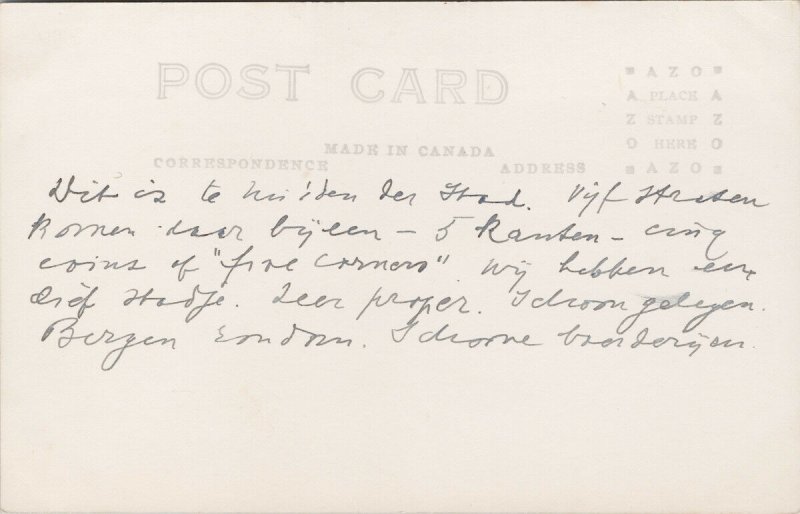 POST CARD
AZO
A PLACE A
Z STAMP Z
O HERE O
AZO
MADE IN CANADA
CORRESPONDENCE
ADDRESS
Dit is te midden der Stad. Vijf Straten
Komen daar bijeen – 5 Kanten – cinq
coins of "five Corners". Wij hebben een
lief Stadje. Zeer proper. Schoon gelegen.
Bergen rondom. Schoone boerderijen.